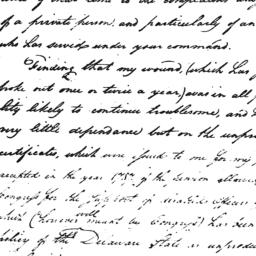 of a private person, and particularly of an
who has served under your command.
Finding that my wound, (which has g
broke out once or twice a year,) was in all p
lity likely to continue troublesome, and
very little dependance but on the unpro
certificates, which were issued to me for my
in the year 1787 of the pension allow
Congress for the support of invalid officers
(however well meant by Congress) has been
policy of this Delaware State is unproduc